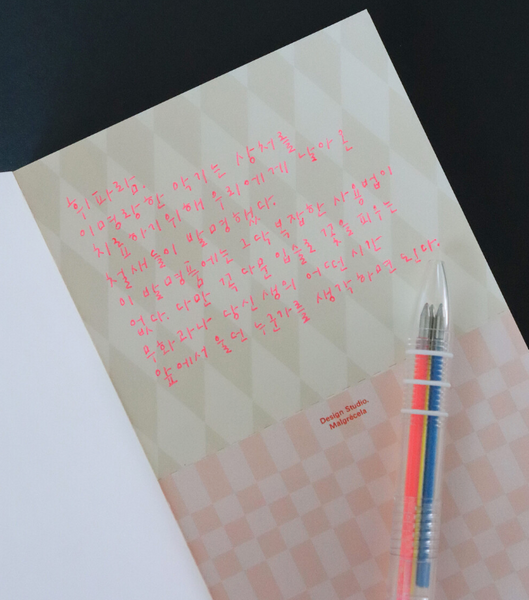 휘파람.
이 명랑한 악기는 상처를
치료하기위해 우리에게 날아온
철새들이 발명했다.
이 발명품에는 그닥 복잡한 사용법이
없다. 다만 꼭 다문 입술로 꽃을 피우는
무화과나 당신 생의 어떤 시간
앞에서 울던 누군가를 생각하면 된다.
Design Studio.
Malgrécela